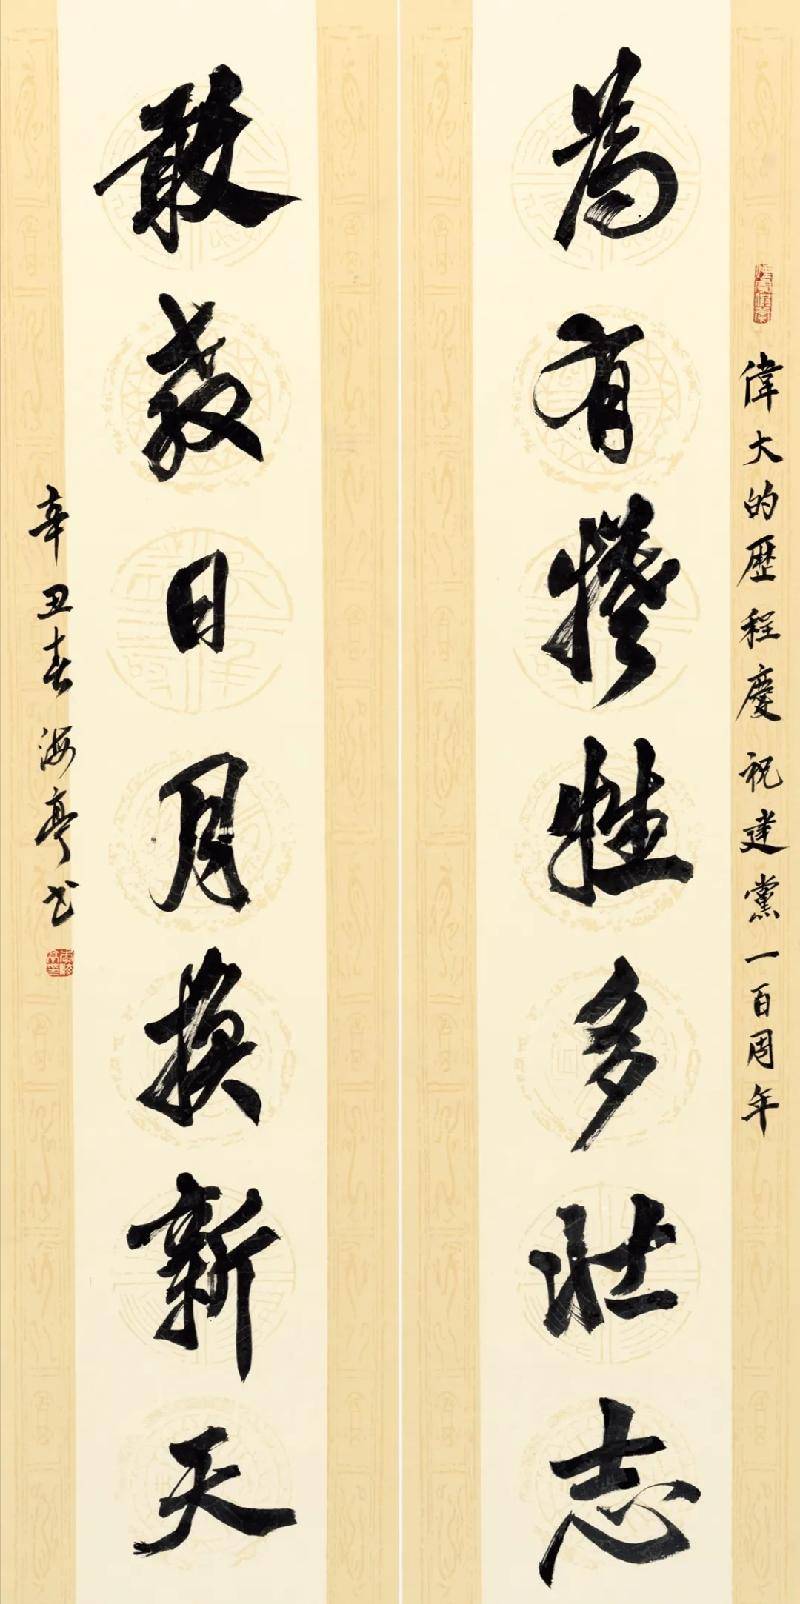 偉大的歷程慶祝建黨一百周年
為有犧牲多壯志
敢教日月換新天
辛丑春海亭书